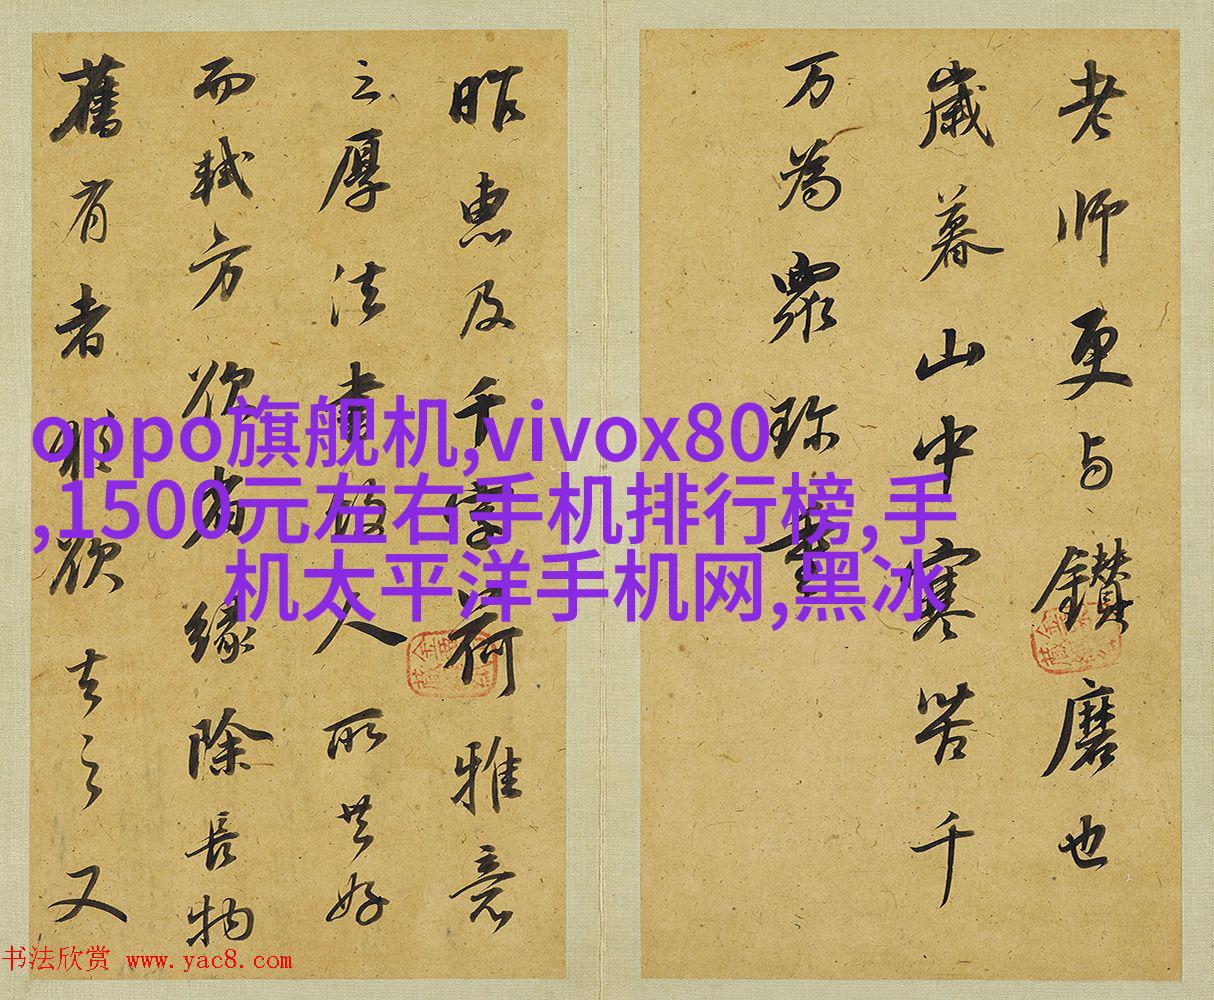 老师更与鑽磨也
歲暮山中寒苦千
万為眾珍重
昨惠及千字荷雅意
之厚法書故人所共好
而軾方欲省緣除長物
舊有者猶欲去之又
oppo旗舰机,vivox80
,1500元左右手机排行榜,手
机太平洋手机网,黑冰
书法欣赏 www.yac8.com